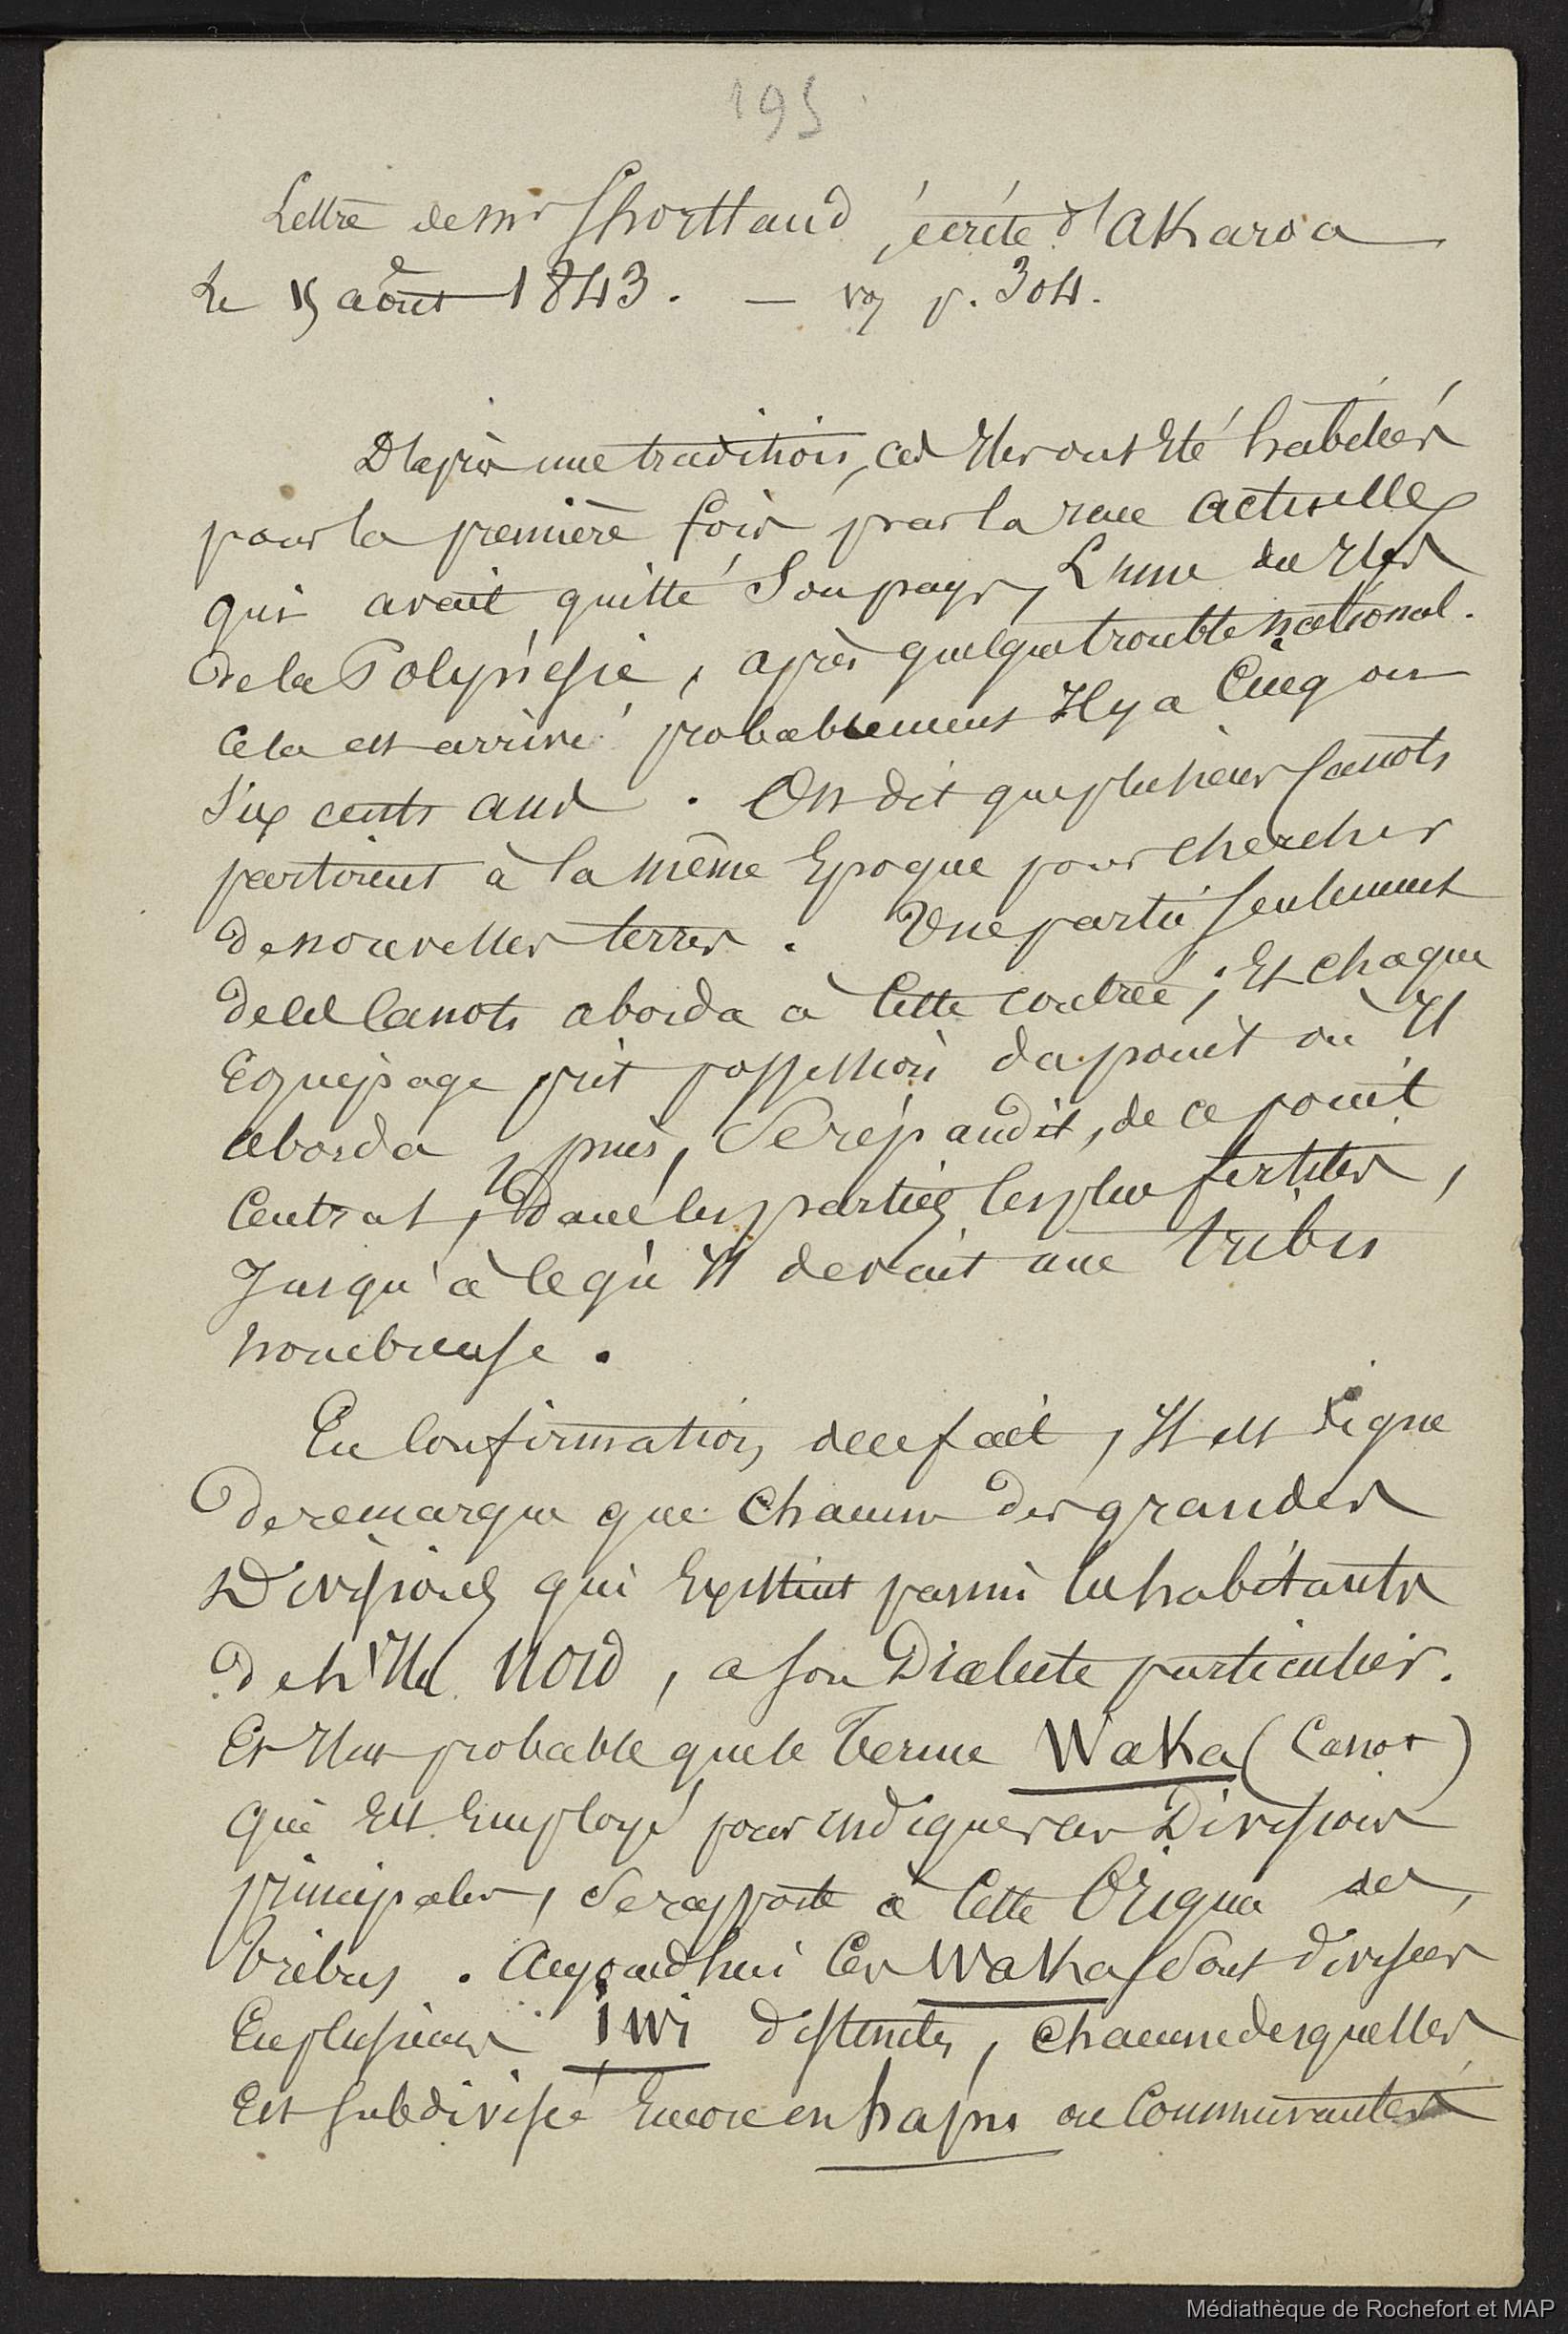 195
Lettre de Mr Shorttand, écrite d'Akaroa
Le 15 août 1843. — voy p. 304.
D'après une tradition, ces Iles ont Eté habitées
pour la première fois par la race actuelle
qui avait quitté Son pays, L'une des Iles
de la Polynésie, après quelque trouble national.
Cela est arrivé probablement Il y a Cinq ou
Six cents ans. On dit que plusieurs Canots
partirent à la même Epoque pour chercher
de nouvelles terres. Une partie seulement
de ces Canots aborda à Cette contrée; Et chaque
Equipage prit possession du point où Il
aborda, puis, Se répandit, de ce point
Central, dans les parties les plus fertiles,
Jusqu'à ce qu'Il devint une tribu
nombreuse.
En Confirmation de ce fait, Il est digne
de remarque que Chacune des grandes
Divisions qui Existent parmi les habitants
de l'Ile Nord, a son Dialecte particulier.
Et Il est probable que le terme Waka (Canot)
qui Est Employé pour indiquer ces Divisions
principales, Se rapporte à Cette Origine des
tribus. Aujourd'hui Ces Wakas Sont divisées
En plusieurs iwi distinctes, Chacune desquelles
Est Subdivisée Encore en hapu ou Communautés
Médiathèque de Rochefort et MAP